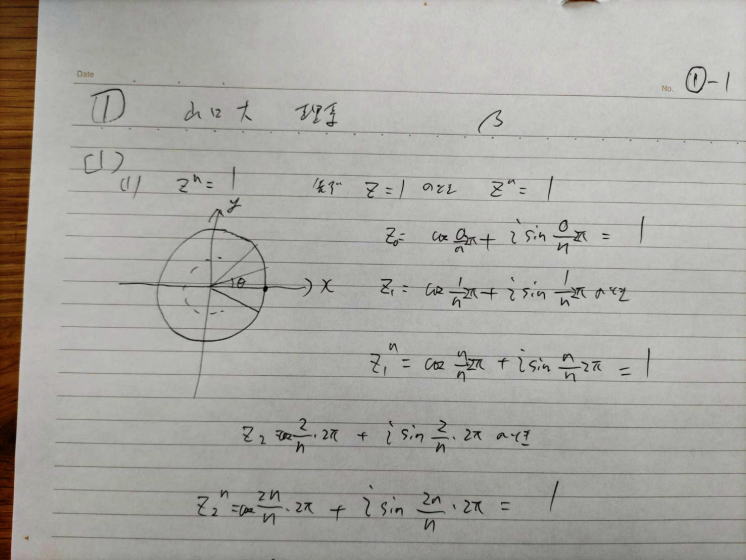 Date
No. ①-1
① 山口大 理系 β
[1]
(1) zⁿ = 1 z = 1 のとき zⁿ = 1
y
z₀ = cos 0/n 2π + i sin 0/n 2π = 1
θ x z₁ = cos 1/n 2π + i sin 1/n 2π のとき
z₁ⁿ = cos n/n 2π + i sin n/n 2π = 1
z₂ = cos 2/n · 2π + i sin 2/n · 2π のとき
z₂ⁿ = cos 2n/n · 2π + i sin 2n/n · 2π = 1